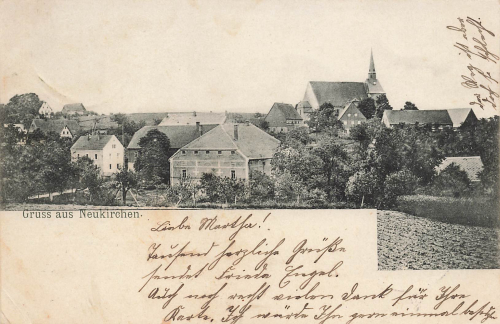 Gruss aus Neukirchen.
Liebe Martha!
Tausend herzliche Grüße
sendet Frieda Engel.
Auch noch recht vielen Dank für Ihre
Karte. Ich wäre Ihnen gern einmal